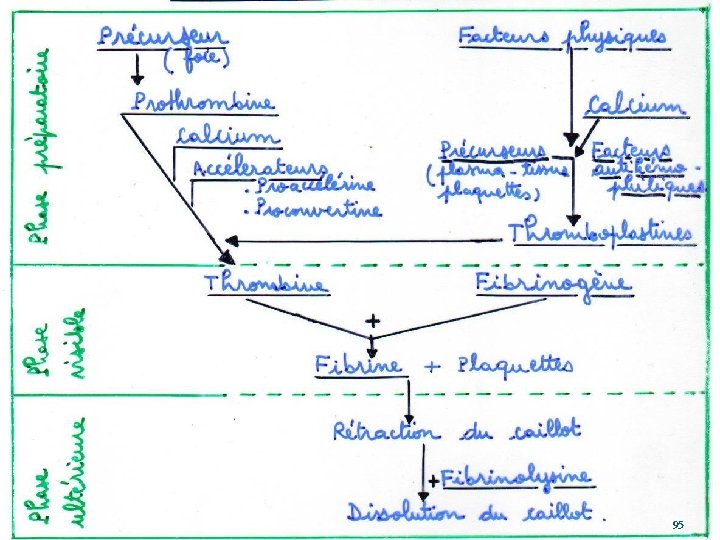 Précurseur
(foie)
Facteurs physiques
Prothrombine
Calcium
Calcium
Accélérateurs
. Proaccélérine
. Proconvertine
Précurseurs
(plasma - tissus
plaquettes)
Facteurs
antihémo-
philiques
Thromboplastines
Phase préparatoire
Thrombine
Fibrinogène
+
Fibrine + Plaquettes
Phase
visible
Rétraction du caillot
+ Fibrinolysine
Dissolution du caillot.
Phase
ultérieure
95